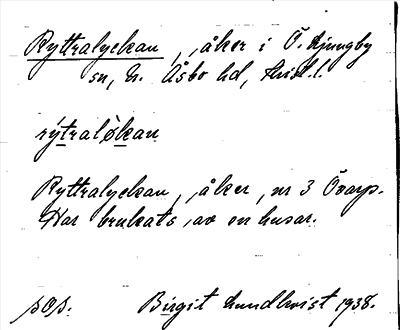 Ryttralyckan, åker i Ö. Ljungby
sn, N. Åsbo hd, Krist. l.
rýtralỳkan
Ryttralyckan, åker, nr 3 Övarp.
Har brukats av en husar.
Birgit Lundkvist 1938.